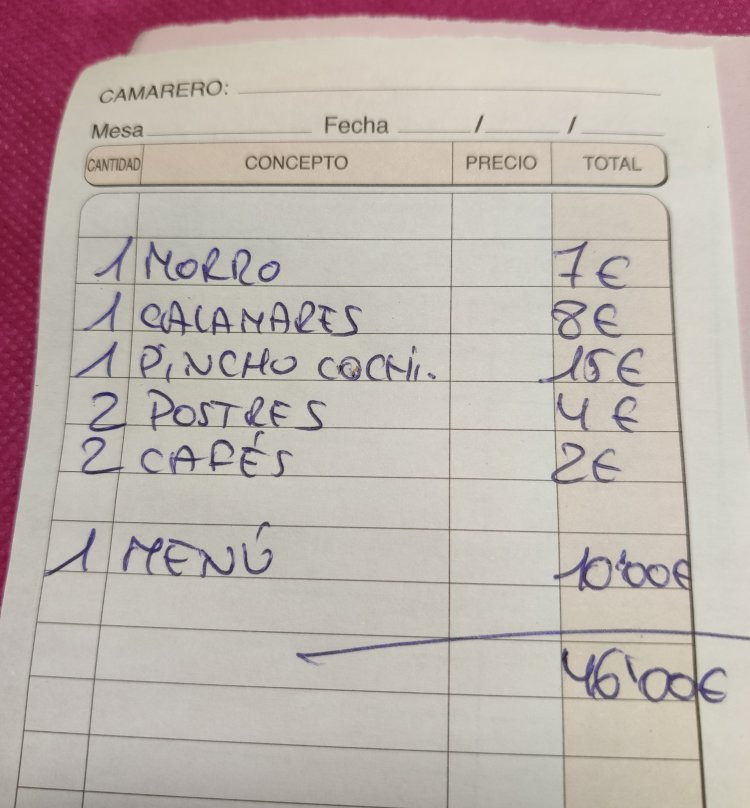 CAMARERO:
Mesa Fecha / /
CANTIDAD CONCEPTO PRECIO TOTAL
1 MORRO 7€
1 CALAMARES 8€
1 PINCHO COCHI. 15€
2 POSTRES 4€
2 CAFÉS 2€
1 MENÚ 10'00€
46'00€